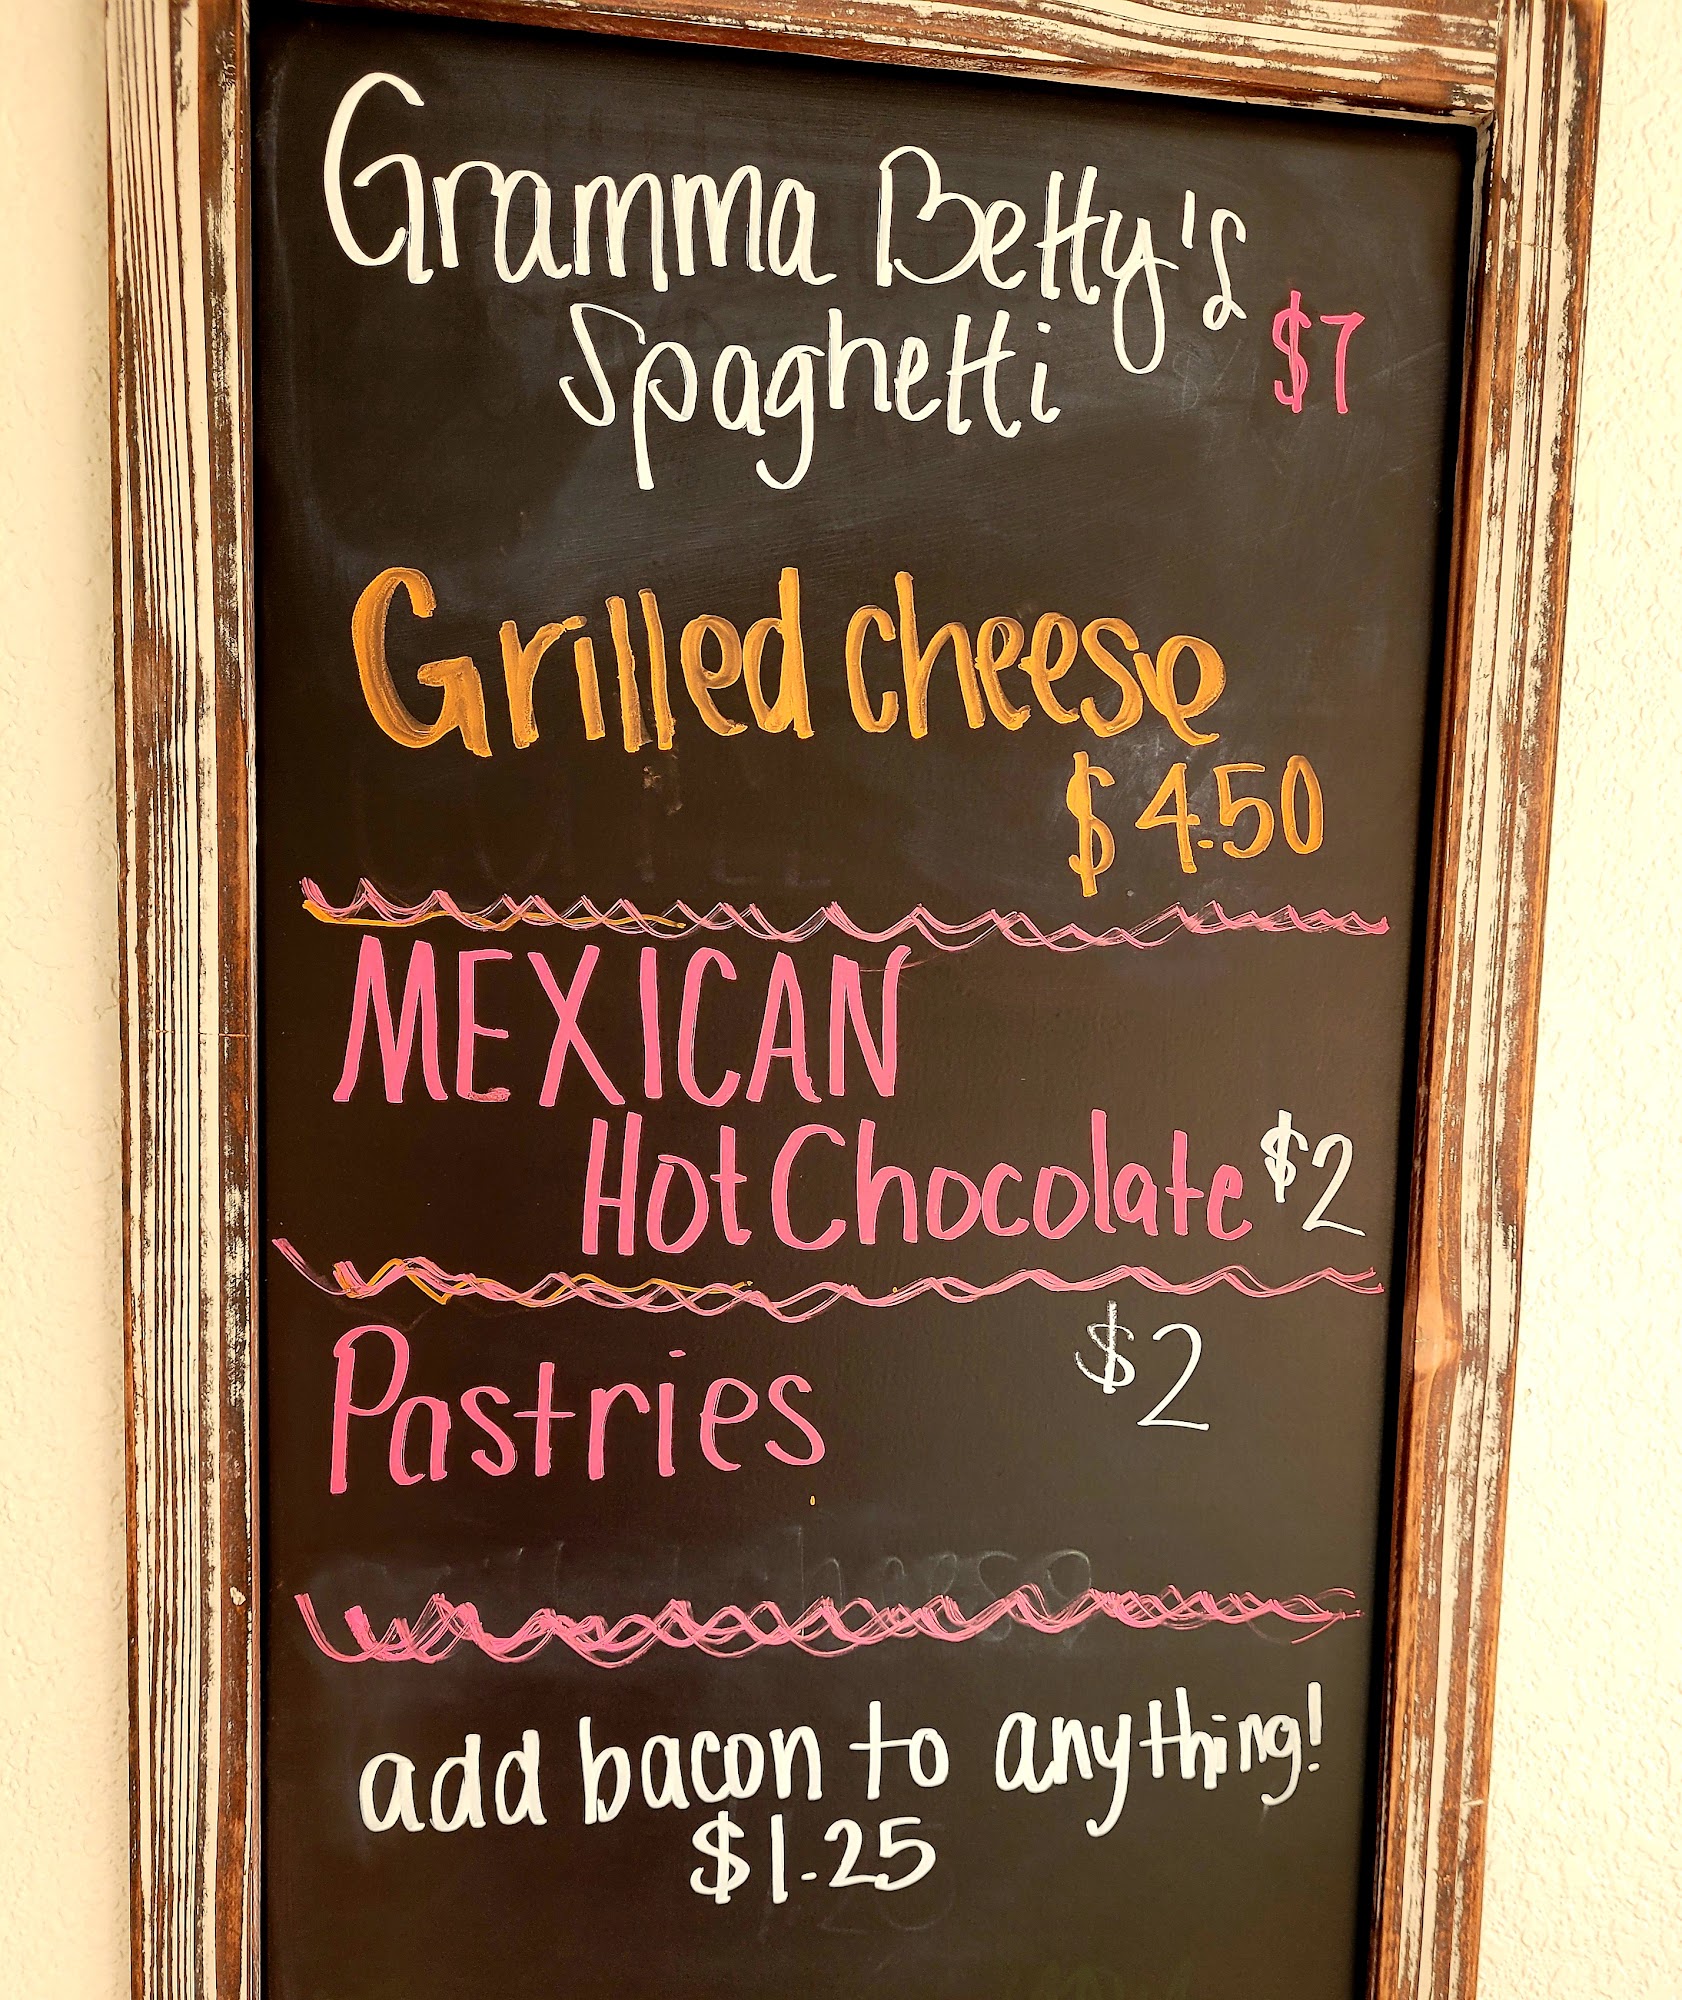 Gramma Betty's
Spaghetti $7
Grilled cheese
$4.50
MEXICAN
Hot Chocolate $2
Pastries $2
add bacon to anything!
$1.25